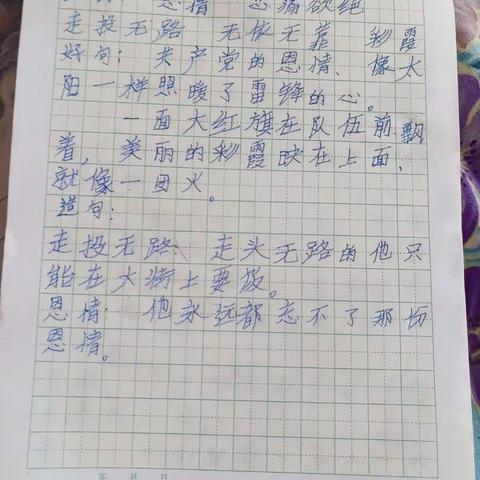 恩情 悲痛欲绝
走投无路 无依无靠 彩霞
好句: 共产党的恩情、像太
阳一样照暖了雷锋的心。
一面大红旗在队伍前飘
着,美丽的彩霞映在上面,
就像一团火。
造句:
走投无路: 走头无路的他只
能在大街上要饭。
恩情: 他永远都忘不了那份
恩情。
年 月 日